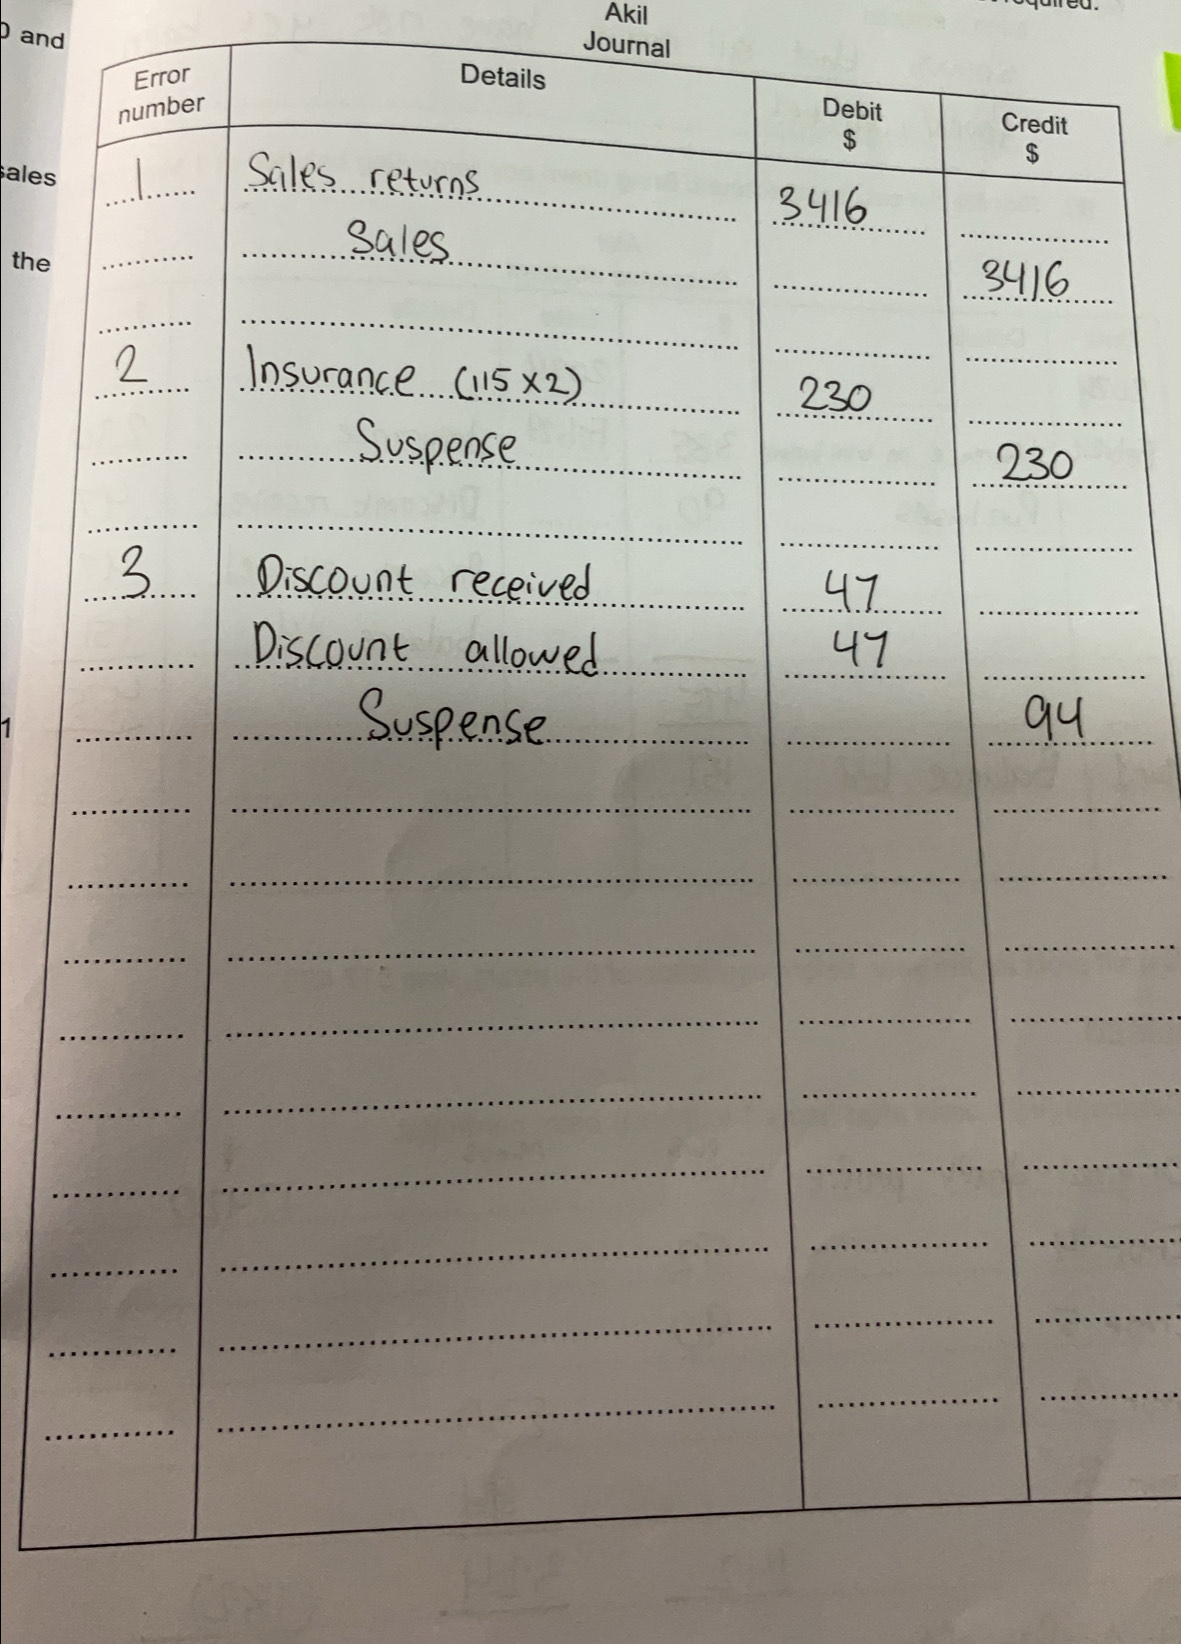 and
Akil
Journal
Error number
Details
Debit
$
Credit
$
sales
the
1 Sales returns 3416
Sales 3416
2 Insurance (115 x 2) 230
Suspense 230
3 Discount received 47
Discount allowed 47
1
Suspense 94